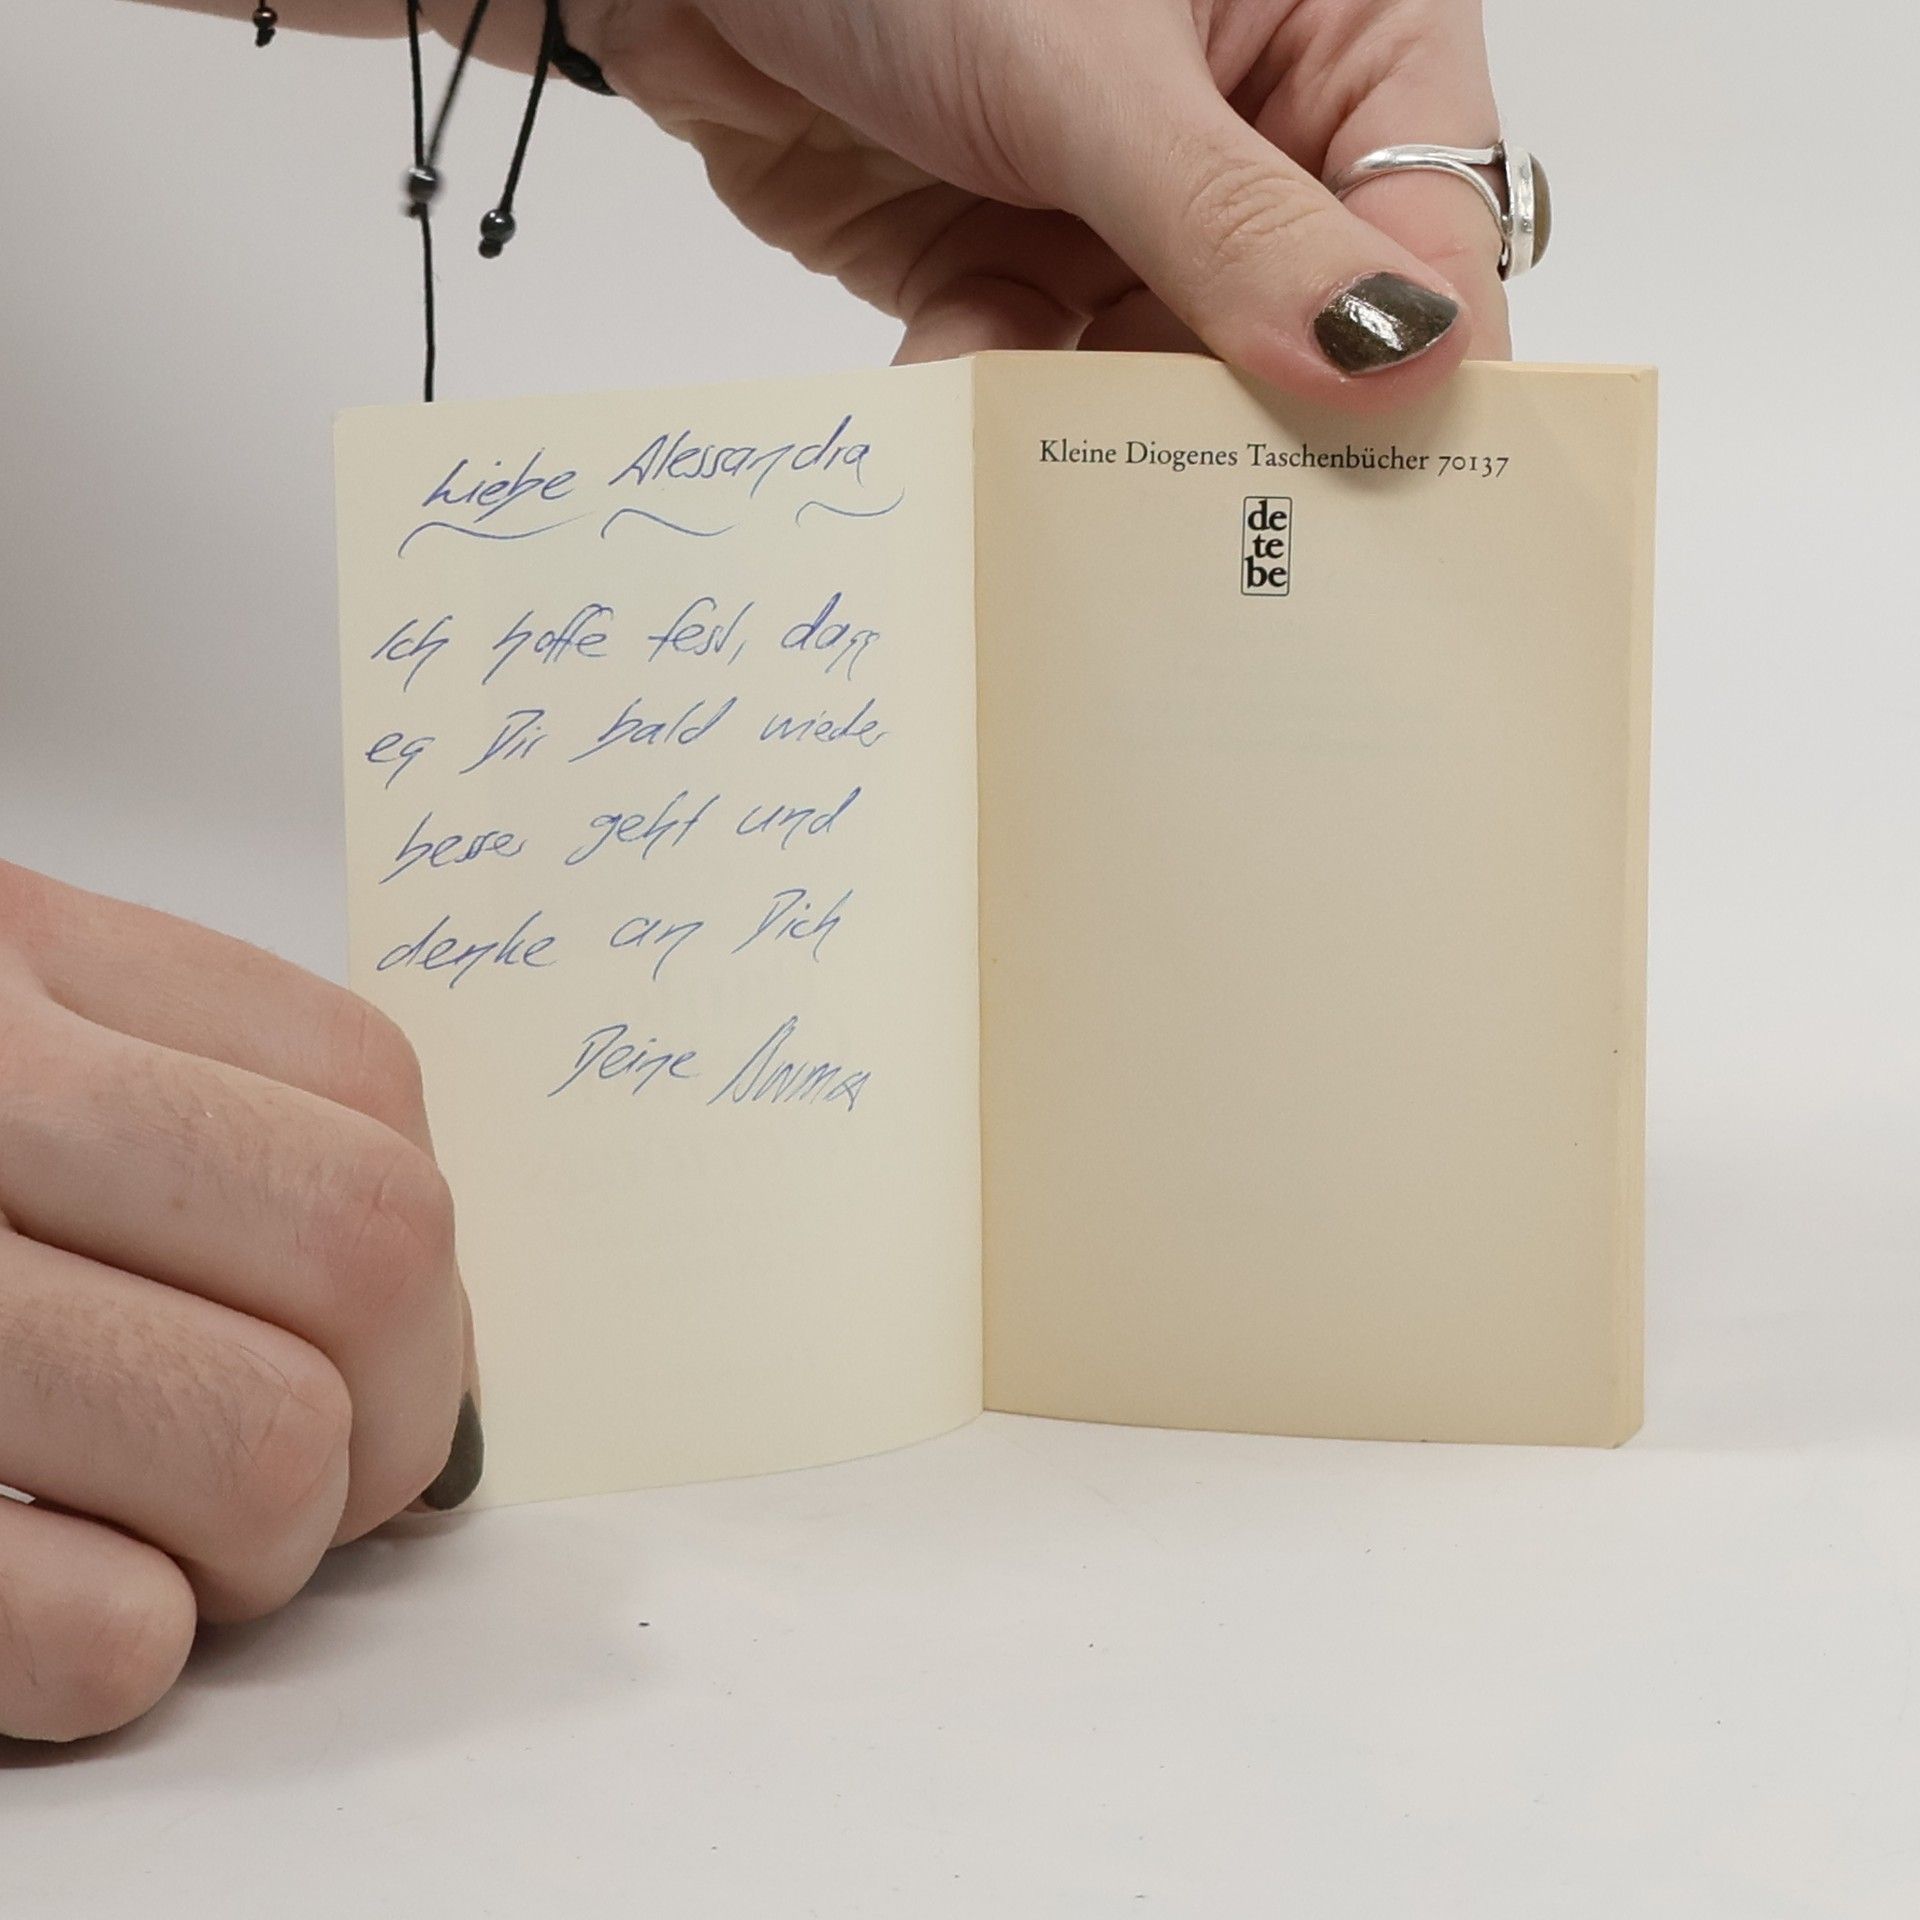 Liebe Alessandra
Ich hoffe fest, dass
es Dir bald wieder
besser geht und
denke an Dich
Deine
Kleine Diogenes Taschenbücher 70137
de
te
be